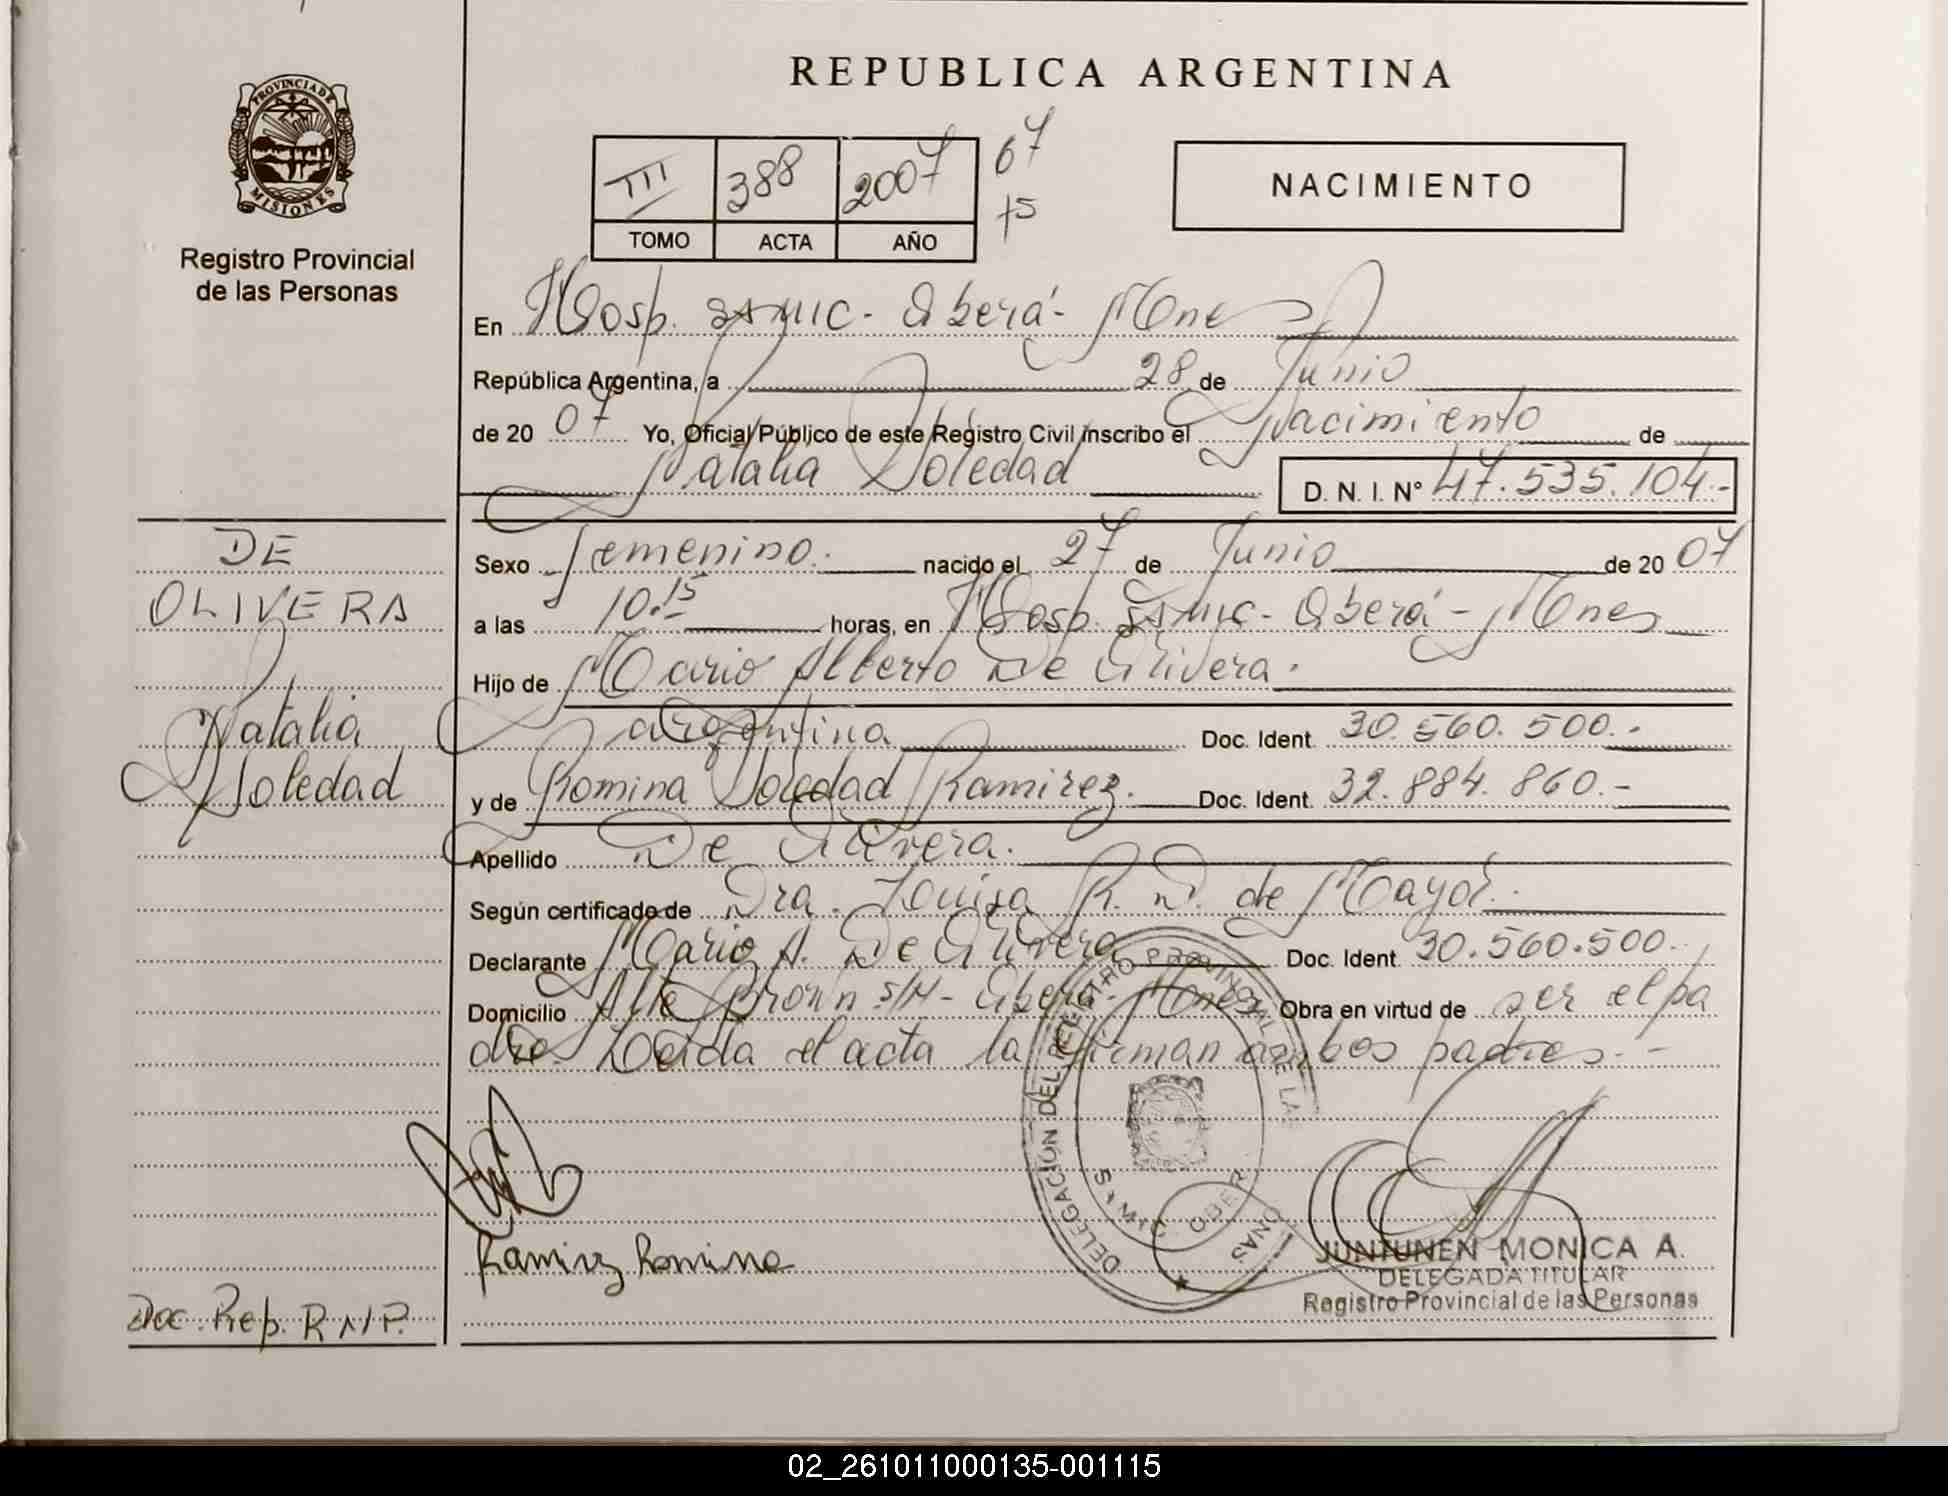 REPUBLICA ARGENTINA
PROVINCIA DE MISIONES
Registro Provincial
de las Personas
III 388 2007 67
75
TOMO ACTA AÑO
NACIMIENTO
En Hosp. SAMIC - Oberá - Mnes
República Argentina, a 28 de Junio
de 20 07 Yo, Oficial Público de este Registro Civil inscribo el Nacimiento de
Natalia Soledad D. N. I. Nº 47.535.104.-
DE
OLIVERA
Natalia
Soledad
Sexo femenino. nacido el 27 de Junio de 20 07
a las 10.15 horas, en Hosp. SAMIC - Oberá - Mnes
Hijo de Mario Alberto De Olivera.
argentina Doc. Ident. 30.560.500.-
y de Romina Soledad Ramirez. Doc. Ident. 32.884.860.-
Apellido De Olivera.
Según certificado de Dra. Louisa R. D. de Mayol.
Declarante Mario A. De Olivera Doc. Ident. 30.560.500.
Domicilio Alte Brown s/n - Oberá - Mnes Obra en virtud de ser el pa
dre. Leida el acta la firman ambos padres.-
DELEGACION DEL REGISTRO PROVINCIAL DE LAS PERSONAS
SAMIC OBERA
Ramirez Romina
JUNTUNEN MONICA A.
DELEGADA TITULAR
Registro Provincial de las Personas
Doc. Rep. R.N.P.
02_261011000135-001115